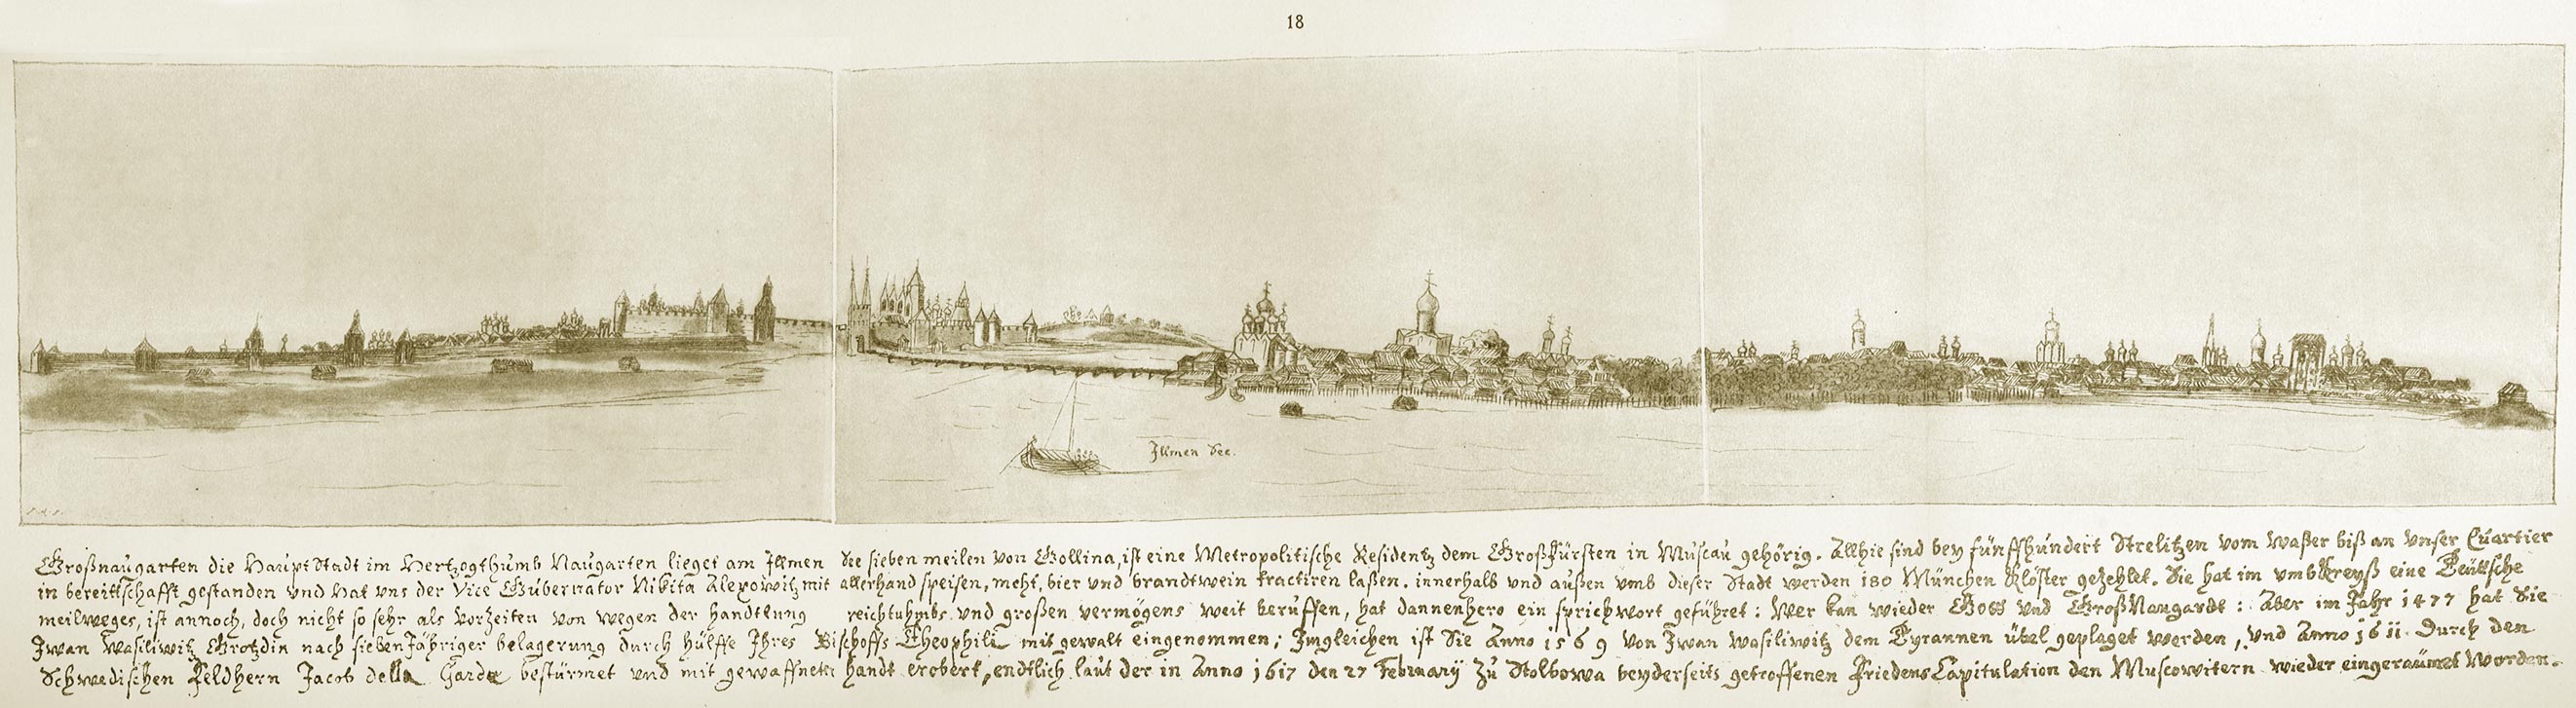 18
Illmen See.
Großnaugarten die HauptStadt im Hertzogthumb Naugarten lieget am Illmen See sieben meilen von Gollina, ist eine Metropolitische Residentz dem Großfürsten in Muscau gehörig. Allhie sind bey fünffhundert Strelitzen vom waßer biß an unser Quartier
in bereittschafft gestanden und hat uns der Vice Gubernator Nikita Alexowitz mit allerhand speisen, meht, bier und brandtwein tractiren laßen. innerhalb und außen umb dieser Stadt werden 180 München Klöster gezehlet. Sie hat im umbkreyß eine Teutsche
meilweges, ist annoch, doch nicht so sehr als vorzeiten von wegen der handtlung reichtuhmbs und großen vermögens weit beruffen, hat dannenhero ein sprichwort geführet: Wer kan wieder Gott und GroßNaugardt: Aber im Jahr 1477 hat Sie
Iwan Wasiliwitz Grotzdin nach siebenJähriger belagerung durch hülffe Ihres Bischoffs Theophili mit gewalt eingenommen; Imgleichen ist Sie Anno 1569 von Iwan wasiliwitz dem Tyrannen übel geplaget werden, und Anno 1611 durch den
Schwedischen Feldhern Jacob della Garde bestürmet und mit gewaffneter handt erobert, endtlich laut der in Anno 1617 den 27 Februarÿ zu Stolbowa beyderseits getroffenen FriedensCapitulation den Muscowitern wieder eingeraümet worden.